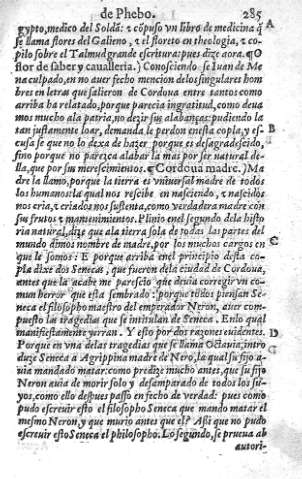 de Phebo. 285
gypto, medico del Soldã: τ cõpuso vn libro de medicina q̃ A
se llama flores del Galieno, τ el floreto en theologia, τ co-
pilo sobre el Talmud grande escritura: pues dize aora. ¶O
flor de saber y cauallería.) Conosciendo se Iuan de Me
na culpado, en no auer fecho mencion de los singulares hom
bres en letras que salieron de Cordoua entre tantos como
arriba ha relatado, porque parecia ingratitud, como deua
mos mucho a la patria, no dezir sus alabanças: pudiendo la
tan justamente loar, demanda le perdon en esta copla, y es- B
cusa se que no lo dexa de hazer porque es desagradescido,
sino porque no parezca alabar la mas por ser natural de-
lla, que por sus merescimientos. ¶Cordoua madre.) Ma
dre la llamo, porque la tierra es vniuersal madre de todos
los humanos la qual nos rescibe en nasciendo, τ nascidos
nos cria, τ criados nos sustenta, como verdadera madre con
sus frutos τ mantenimientos. Plinio en el segundo dela histo
ria natural, dize que ala tierra sola de todas las partes del
mundo dimos nombre de madre, por los muchos cargos en C
que le somos: E porque arriba en el principio desta co-
pla dixe dos Senecas, que fueron dela ciudad de Cordoua,
antes que la acabe me parescio que deuia corregir vn co-
mun herror que esta sembrado: porque todos piensan Se-
neca el philosopho maestro del emperador Neron, auer com-
puesto las tragedias que se intitulan de Seneca. En lo qual
manifiestamente yerran. Y esto por dos razones euidentes. D
Porque en vna delas tragedias que se llama Octauia, intro
duze Seneca a Agrippina madre de Nero, la qual su fijo a- G
uia mandado matar: como predize mucho antes, que su fijo
Neron auia de morir solo y desamparado de todos los su-
yos, como ello despues passo en fecho de verdad: pues como
pudo escreuir esto el filosopho Seneca que mando matar el
mesmo Neron, y que murio antes que el? Assi que no pudo
escreuir esto Seneca el philosopho. Lo segundo, se prueua ab
autori-